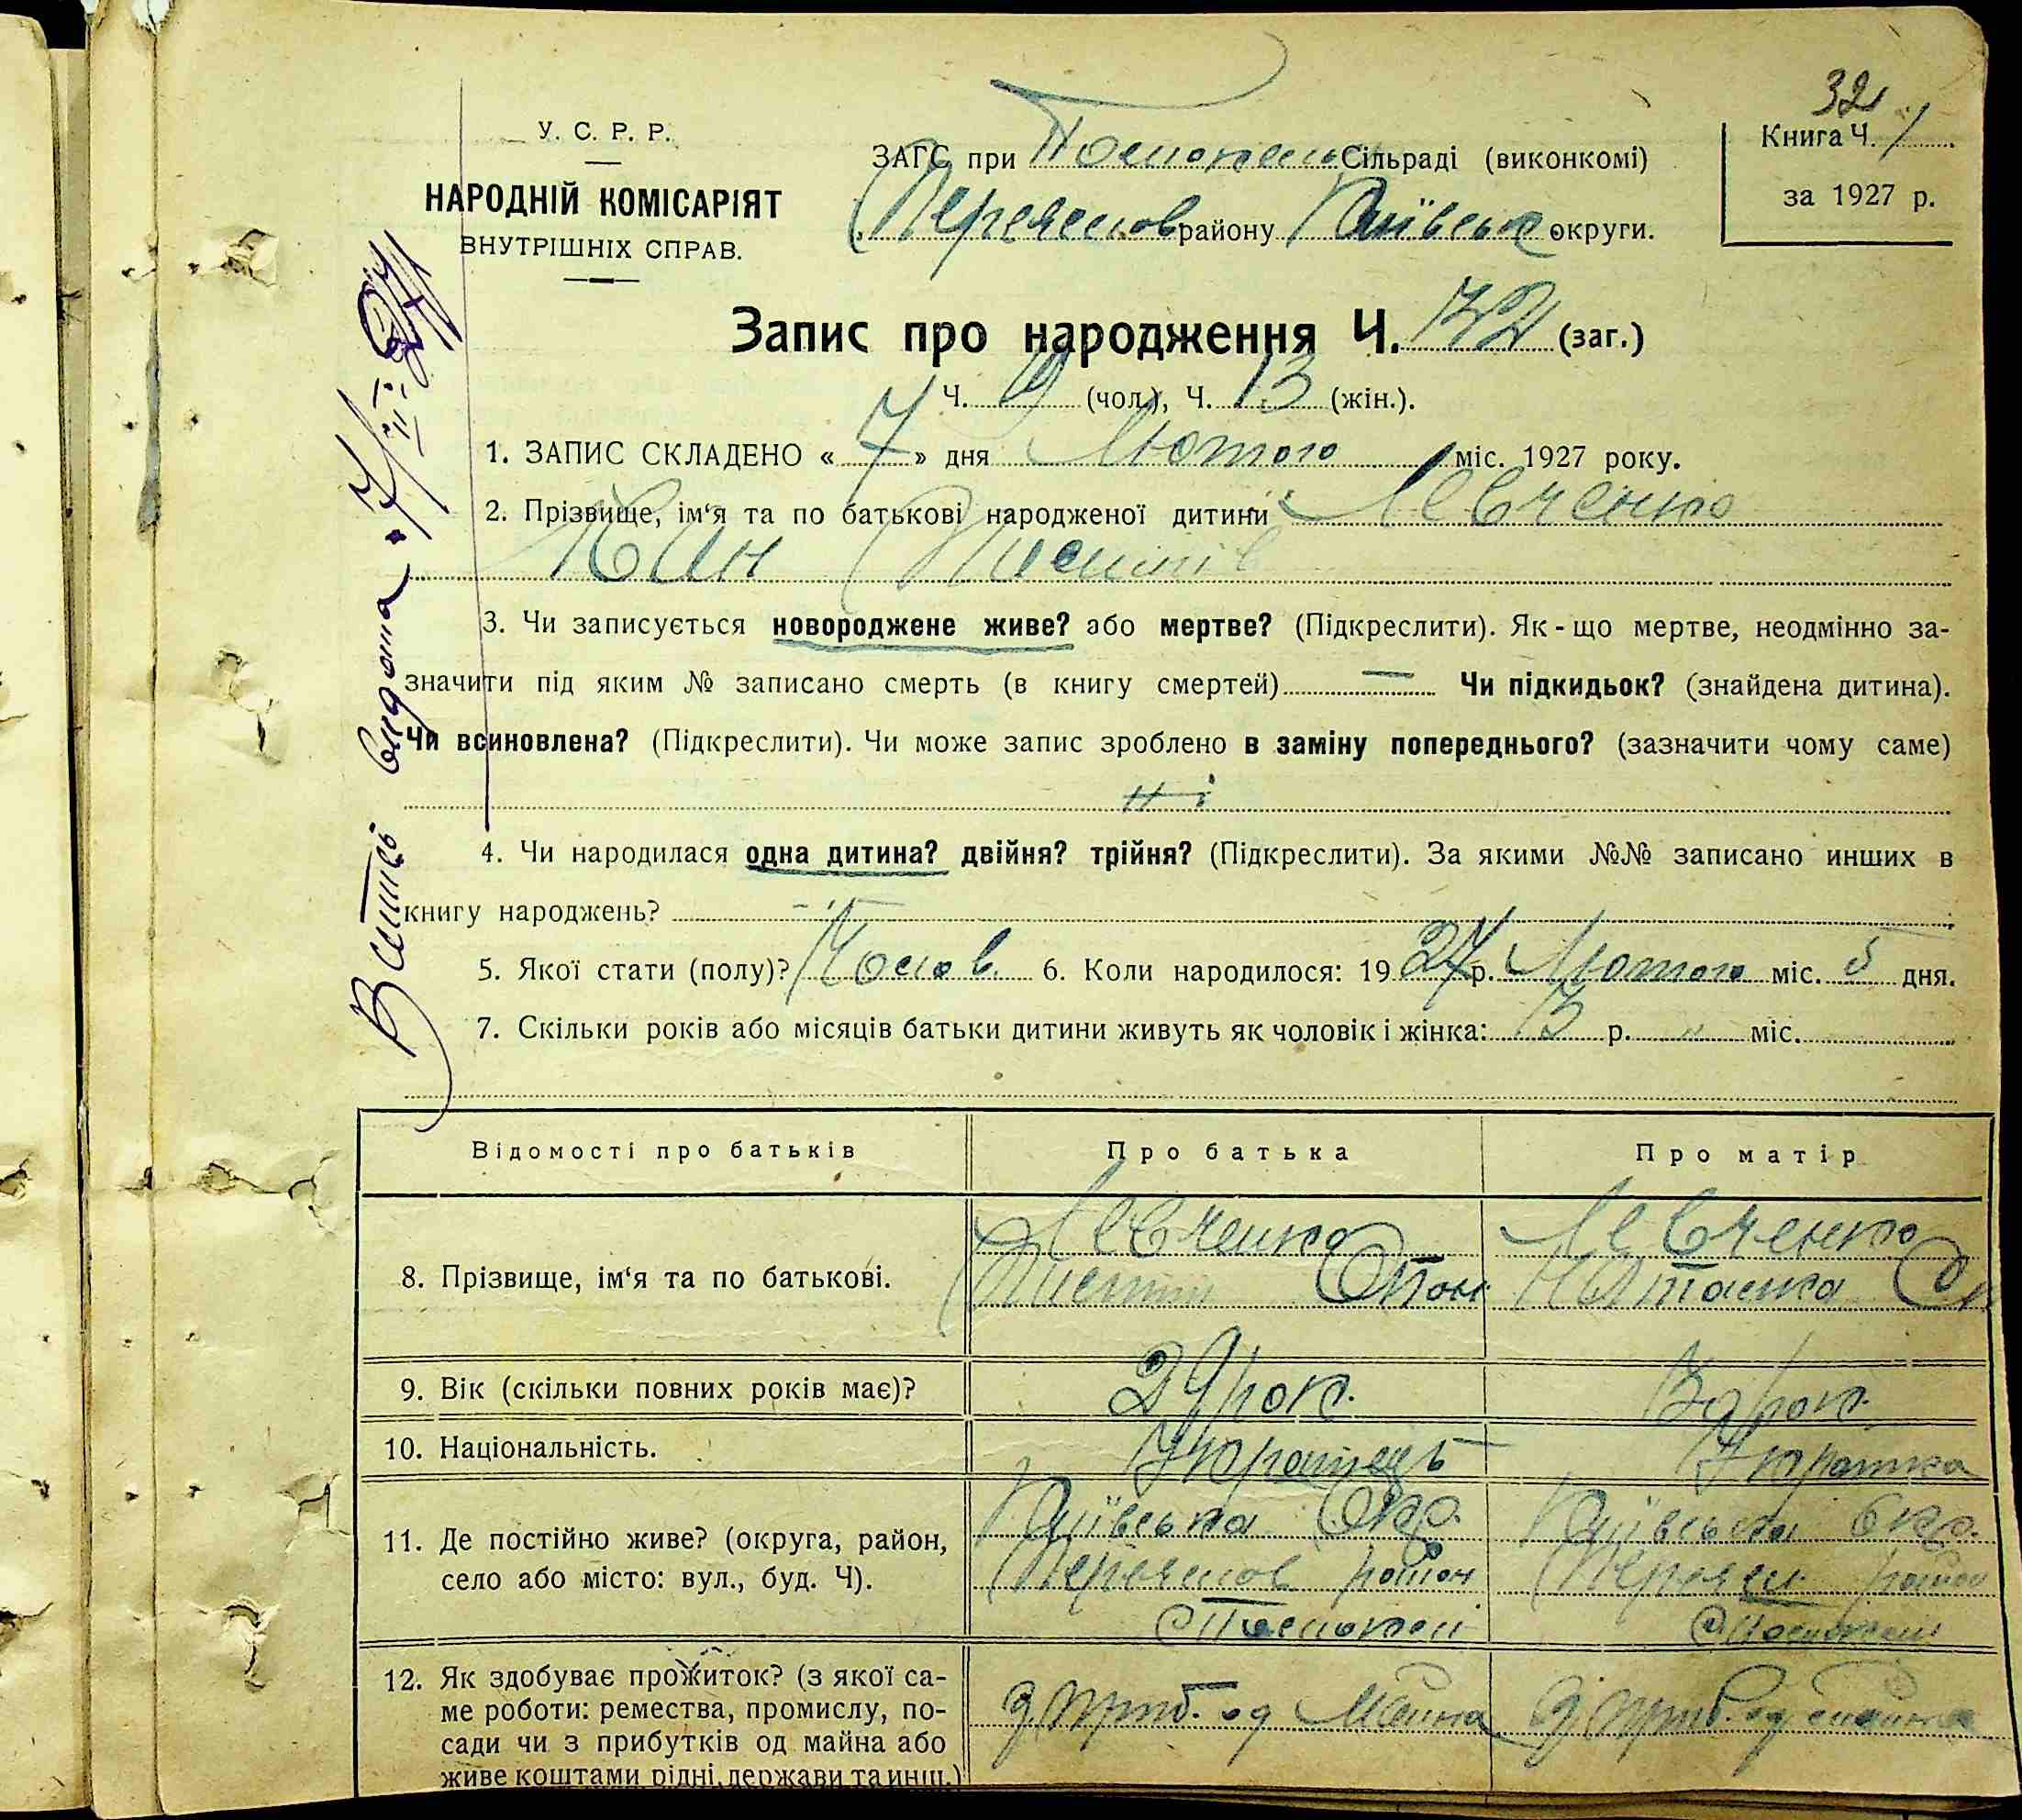 32
У. С. Р. Р.
НАРОДНІЙ КОМІСАРІЯТ
ВНУТРІШНІХ СПРАВ.
ЗАГС при Сільраді (виконкомі)
Переяслов району Київська округи.
Книга Ч. 1
за 1927 р.
Запис про народження Ч. (заг.)
Ч. (чол.), Ч. 13 (жін.).
1. ЗАПИС СКЛАДЕНО « 7 » дня Лютого міс. 1927 року.
2. Прізвище, ім'я та по батькові народженої дитини Левченко
3. Чи записується новороджене живе? або мертве? (Підкреслити). Як-що мертве, неодмінно за-
значити під яким № записано смерть (в книгу смертей) — Чи підкидьок? (знайдена дитина).
Чи всиновлена? (Підкреслити). Чи може запис зроблено в заміну попереднього? (зазначити чому саме)
ні
4. Чи народилася одна дитина? двійня? трійня? (Підкреслити). За якими №№ записано инших в
книгу народжень?
5. Якої стати (полу)? Чолов. 6. Коли народилося: 1927 р. Лютого міс. 5 дня.
7. Скільки років або місяців батьки дитини живуть як чоловік і жінка: 3 р. " міс.
Відомості про батьків
Про батька
Про матір
8. Прізвище, ім'я та по батькові.
Левченко
Левченко
9. Вік (скільки повних років має)?
29 рок.
рок.
10. Національність.
Українець
Українка
11. Де постійно живе? (округа, район,
село або місто: вул., буд. Ч).
Київська Окр.
Переяслов район
Київська Окр.
Переясл. район
12. Як здобуває прожиток? (з якої са-
ме роботи: ремества, промислу, по-
сади чи з прибутків од майна або
живе коштами рідні, держави та инш.)
З приб. од Майна
З приб. од майна